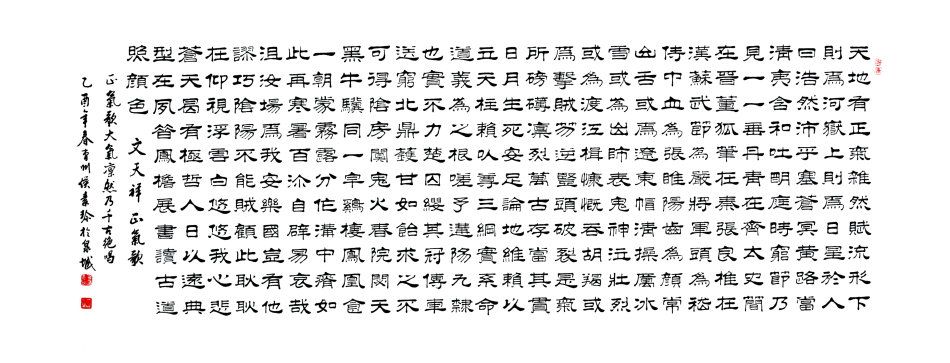 天地有正氣雜然賦流形下
則為河嶽上則為日星於人
曰浩然沛乎塞蒼冥皇路當
清夷含和吐明庭時窮節乃
見一一垂丹青在齊太史簡
在晉董狐筆在秦張良椎在
漢蘇武節為嚴將軍頭為嵇
侍中血為張睢陽齒為顏常
山舌或為遼東帽清操厲冰
雪或為出師表鬼神泣壯烈
或為渡江楫慷慨吞胡羯或
為擊賊笏逆豎頭破裂是氣
所磅礴凜烈萬古存當其貫
日月生死安足論地維賴以
立天柱賴以尊三綱實系命
道義為之根嗟予遘陽九隸
也實不力楚囚纓其冠傳車
送窮北鼎鑊甘如飴求之不
可得陰房闃鬼火春院閟天
黑牛驥同一皁雞棲鳳凰食
一朝蒙霧露分作溝中瘠如
此再寒暑百沴自辟易哀哉
沮洳場為我安樂國豈有他
謬巧陰陽不能賊顧此耿耿
在仰視浮雲白悠悠我心悲
蒼天曷有極哲人日以遠典
型在夙昔風檐展書讀古道
照顏色 文天祥正氣歌
正氣歌大氣凜然乃千古絕唱
乙酉年春青州侯素玲於泉城